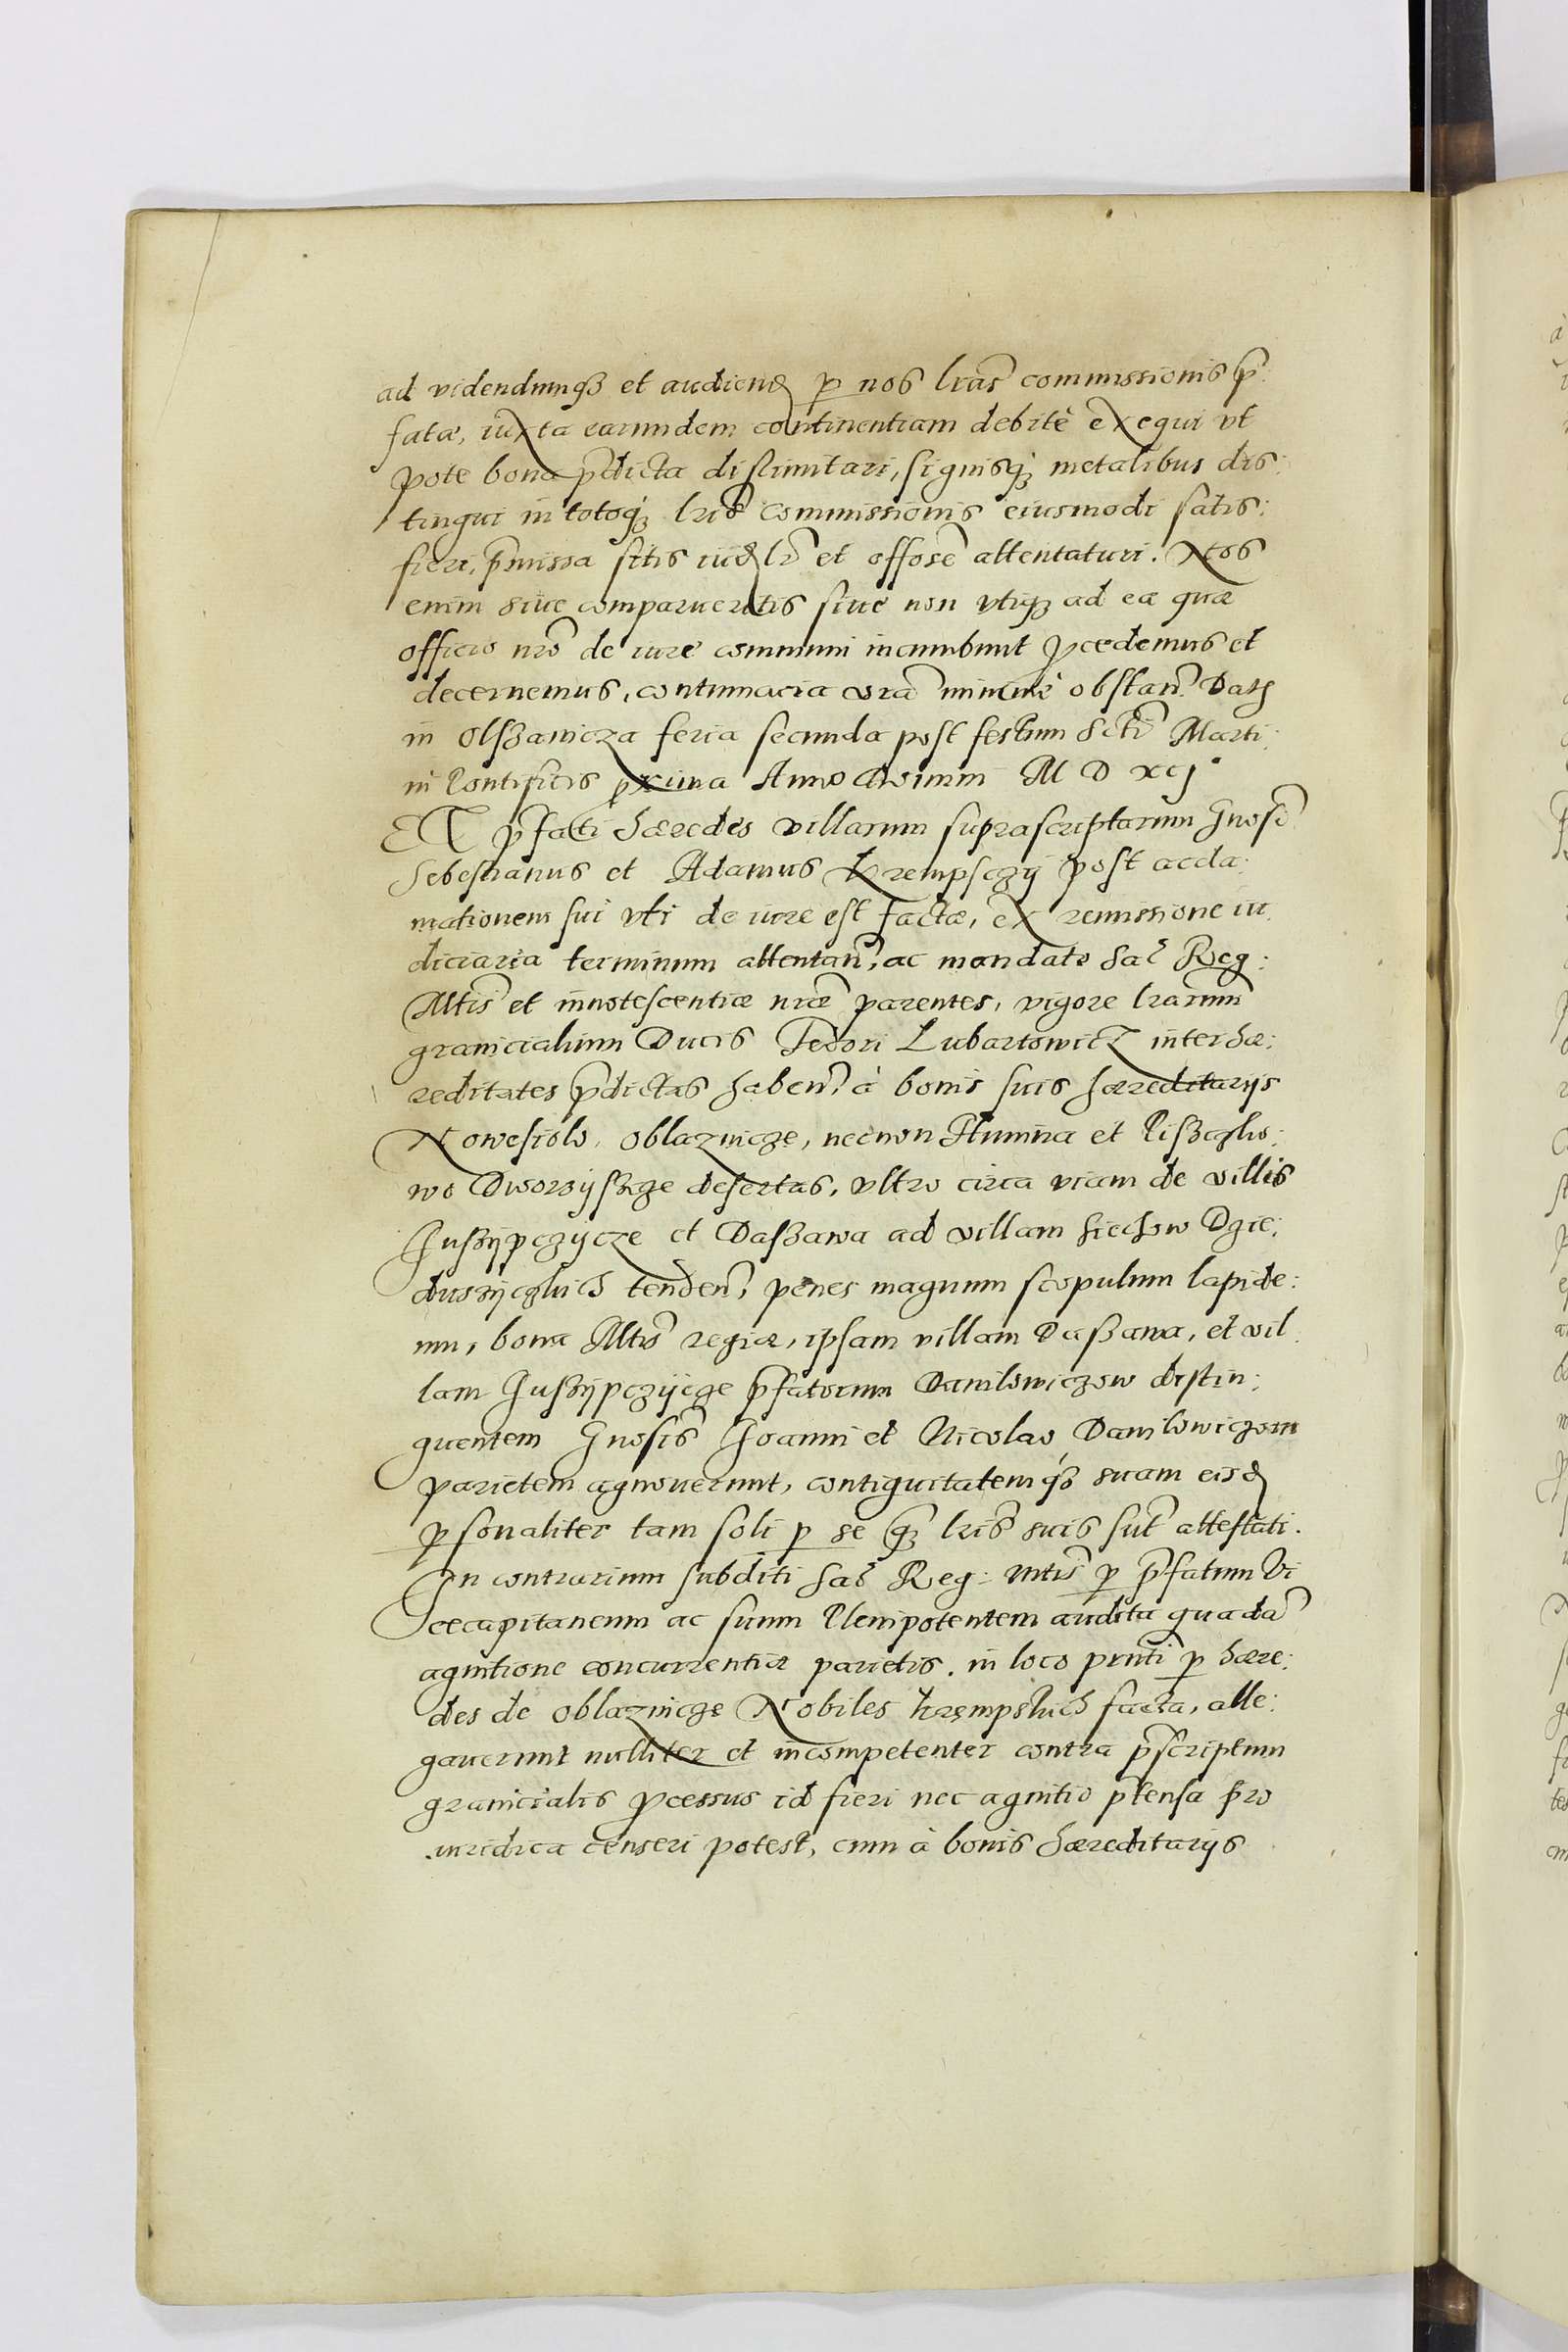 ad videndumqȝ et audiend p nos lras commissionis p̃:
fatæ, iuxta earundem continentiam debitè exequi vt
pote bona p̃dicta dislimitari, signisqȝ metalibus dis:
tingui in totoqȝ lris commissionis eiusmodi satis:
fieri, p̃missa sitis iudlr et offose attentaturi. Nos
enim siue comparueritis siue non vtiqȝ ad ea quæ
officio nro de iure communi incumbunt pcedemus et
decernemus, contumacia vra minimè obstan. Datȝ
in Olsʒanicza feria secunda post festum Scti Marti:
ni Pontificis pxima Anno Dominin M D xcj.
ET p̃fati hæredes villarum suprascriptarum Gnosi
Sebestianus et Adamus Krempsczy post accla:
mationem sui vti de iure est factæ, ex remissione iu
diciaria terminum attentan, ac mandato Sac Reg:
Mtis et innotescentiæ nræ parentes, vigore lrarum
granicialium Ducis Fedori Lubartowicz inter hæ:
reditates p̃dictas haben, à bonis suis hæreditarijs
Nowesiolo, Oblaznicze, necnon Humna et Lisʒczko:
wo Dworzysʒcze desertas, vltro circa viam de villis
Jusʒypczycze et Dasʒawa ad villam Siechow Dzie:
dusʒyczkich tenden, penes magnum scopulum lapide:
um, bona Mtis regiæ, ipsam villam Dasʒawa, et vil
lam Jusʒypczycze p̃fatorum Danilowiczow distin:
guentem Gnosis Joanni et Nicolao Danilowiczom
parietem agnouerunt, contiguitatemqȝ suam eisd
psonaliter tam soli p se qȝ lris suis sut attestati.
In contrarium subditi Sac Reg: Mtis p p̃fatum Vi
cecapitaneum ac suum Plenipotentem audita quada
agnitione concurrentiæ parietis. in loco pnti p hære:
des de Oblaznicze Nobiles Krempskich facta, alle:
gauerunt nulliter et incompetenter contra p̃scriptum
granicialis pcessus id fieri nec agnitio p̃tensa pro
iuridica censeri potest, cum à bonis hæreditarijs